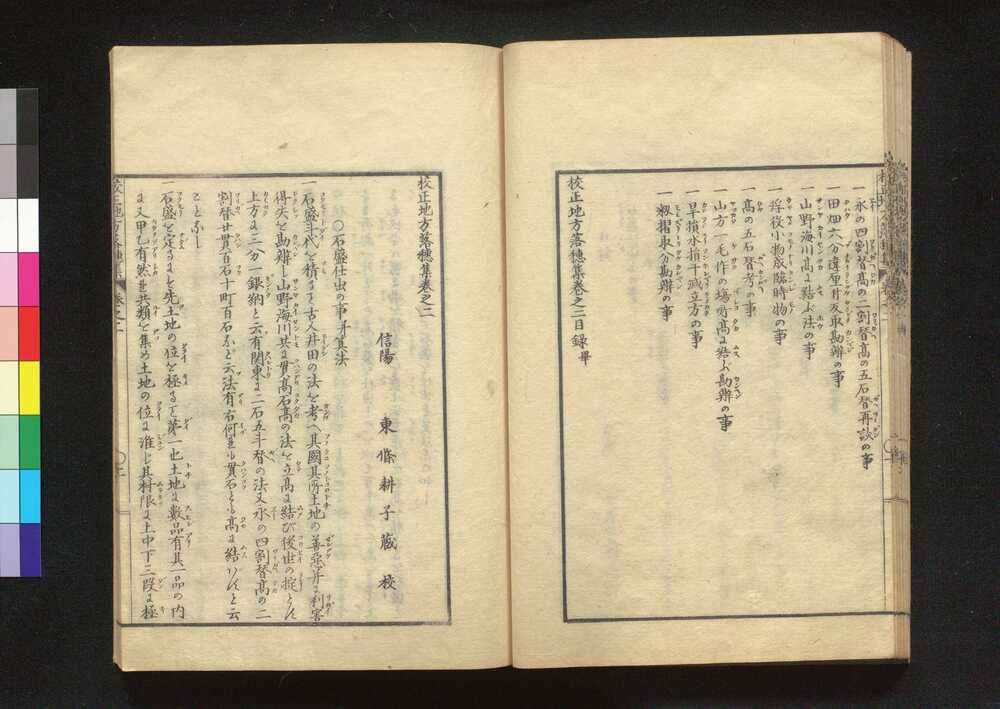 一永の四割替髙の二割替髙の五石替再談の事
一田畑六分違厘付反取勘辨の事
一山野海川髙に結ふ法の事
一浮役小物成臨時物の事
一髙の五石替考の事
一山方一毛作の場所髙に結ふ勘辨の事
一旱損水損干減立方の事
一籾摺取分勘辨の事
校正地方落穂集巻之三目録畢
校正地方落穂集巻之二
〇石盛仕出の事并算法
信陽 東條耕子藏校
一石盛斗代を積るは古人井田の法を考へ其國其所土地の善惡并に利害
得失を勘辨し山野海川共に貫髙石髙の法を立髙に結び後世の掟とす
上方に三分一銀納と云有関東に二石五斗替の法又永の四割替髙の二
割替廿貫百石十町百石など云法有右何れも貫石とも髙に結ばんと云
ことなし
一石盛を定るには先土地の位を極ること第一也土地に數品有其一品の内
に又甲乙有然共共類を集め土地の位に准じ其村限に上中下三段に極